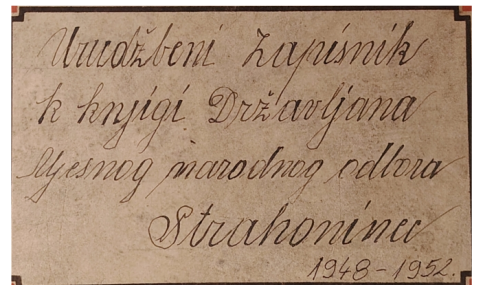 Urudžbeni Zapisnik
k knjigi Državljana
Mjesnog narodnog odbora
Strahoninec
1948-1952.